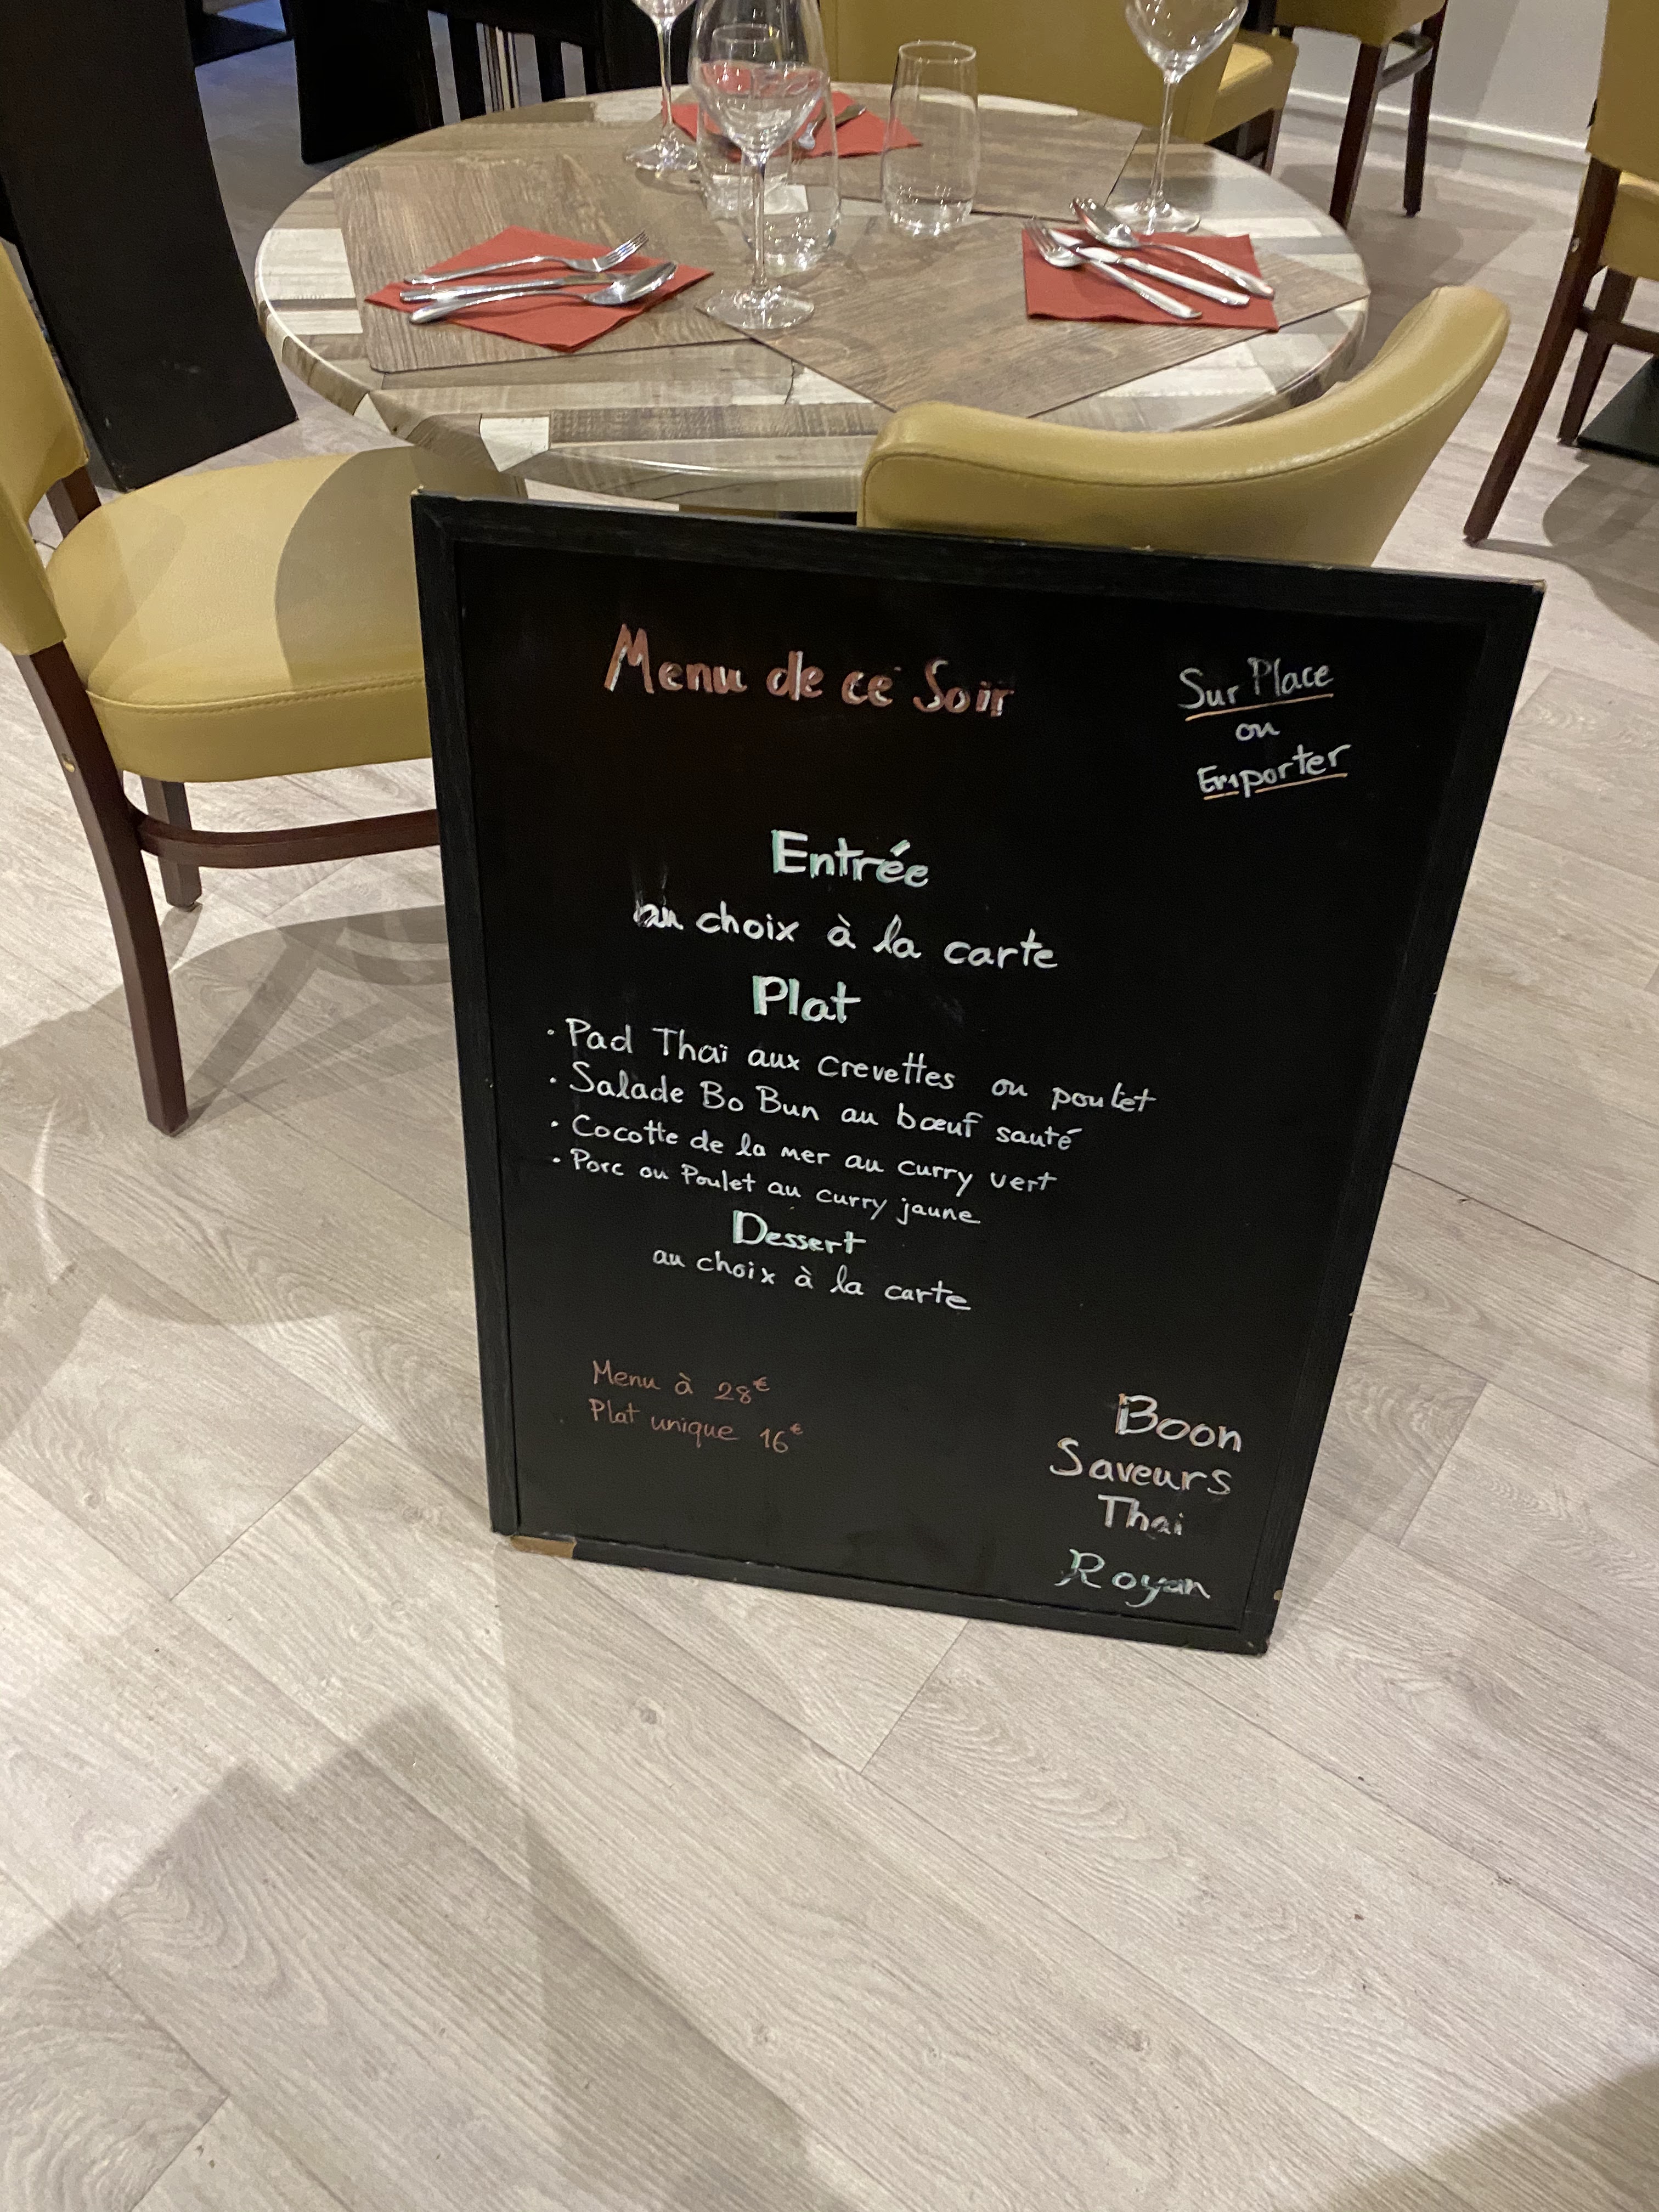 Menu de ce Soir
Sur Place
ou
Emporter
Entrée
au choix à la carte
Plat
· Pad Thaï aux crevettes ou poulet
· Salade Bo Bun au bœuf sauté
· Cocotte de la mer au curry vert
· Porc ou Poulet au curry jaune
Dessert
au choix à la carte
Menu à 28€
Plat unique 16€
Boon
Saveurs
Thai
Royan